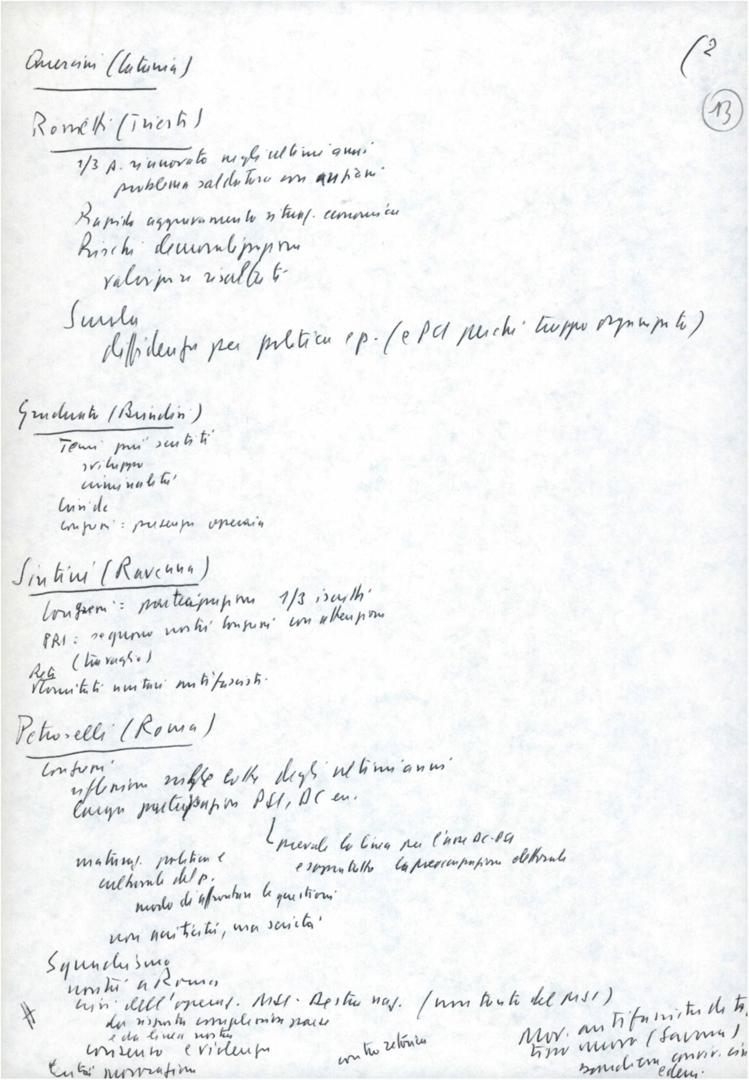 (2
13
Quercini (Catania)
Rossetti (Trieste)
1/3 p. rinnovato negli ultimi anni
problema saldatura con anziani
Rapido aggravamento situaz. economica
Rischi demoralizzazione
valorizzare risultati
Scuola
diffidenza per politica e p. (e PCI perché troppo organizzato)
Graduata (Brindisi)
Temi più sentiti
sviluppo
criminalità
Congressi: presenza operaia
Sintini (Ravenna)
Congressi: partecipazione 1/3 iscritti
PRI: seguono nostri congressi con attenzione
(travaglio)
Comitati unitari antifascisti
Petroselli (Roma)
Congressi
riflessione sulle lotte degli ultimi anni
larga partecipazione PSI, DC ecc.
prevale la linea per l'asse DC-PCI
e soprattutto la preoccupazione elettorale
maturaz. politica e
culturale del p.
modo di affrontare le questioni
non acriticità, ma serietà
Squadrismo
novità a Roma
crisi dell'operaz. MSI-Destra naz. (non tanto del MSI)
da risposta complessiva paese
e da linea nostra
consenso e violenza
contro retorica
Mov. antifascista di
tipo nuovo (Savona)